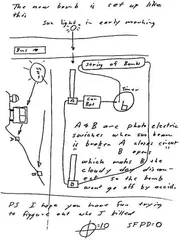 The new bomb is set up like
this
Sun light in early morning
Bus →
String of Bombs
Sun
A
Car
Bat
Timer
B
A & B are photo electric
switches when sun beam
is broken A closes circuit
B opens
which mats B the
cloudy day discon-
ect so the bomb
wont go off by accid.
PS I hope you have fun trying
to figgure out who I killed
=10 SFPD=0